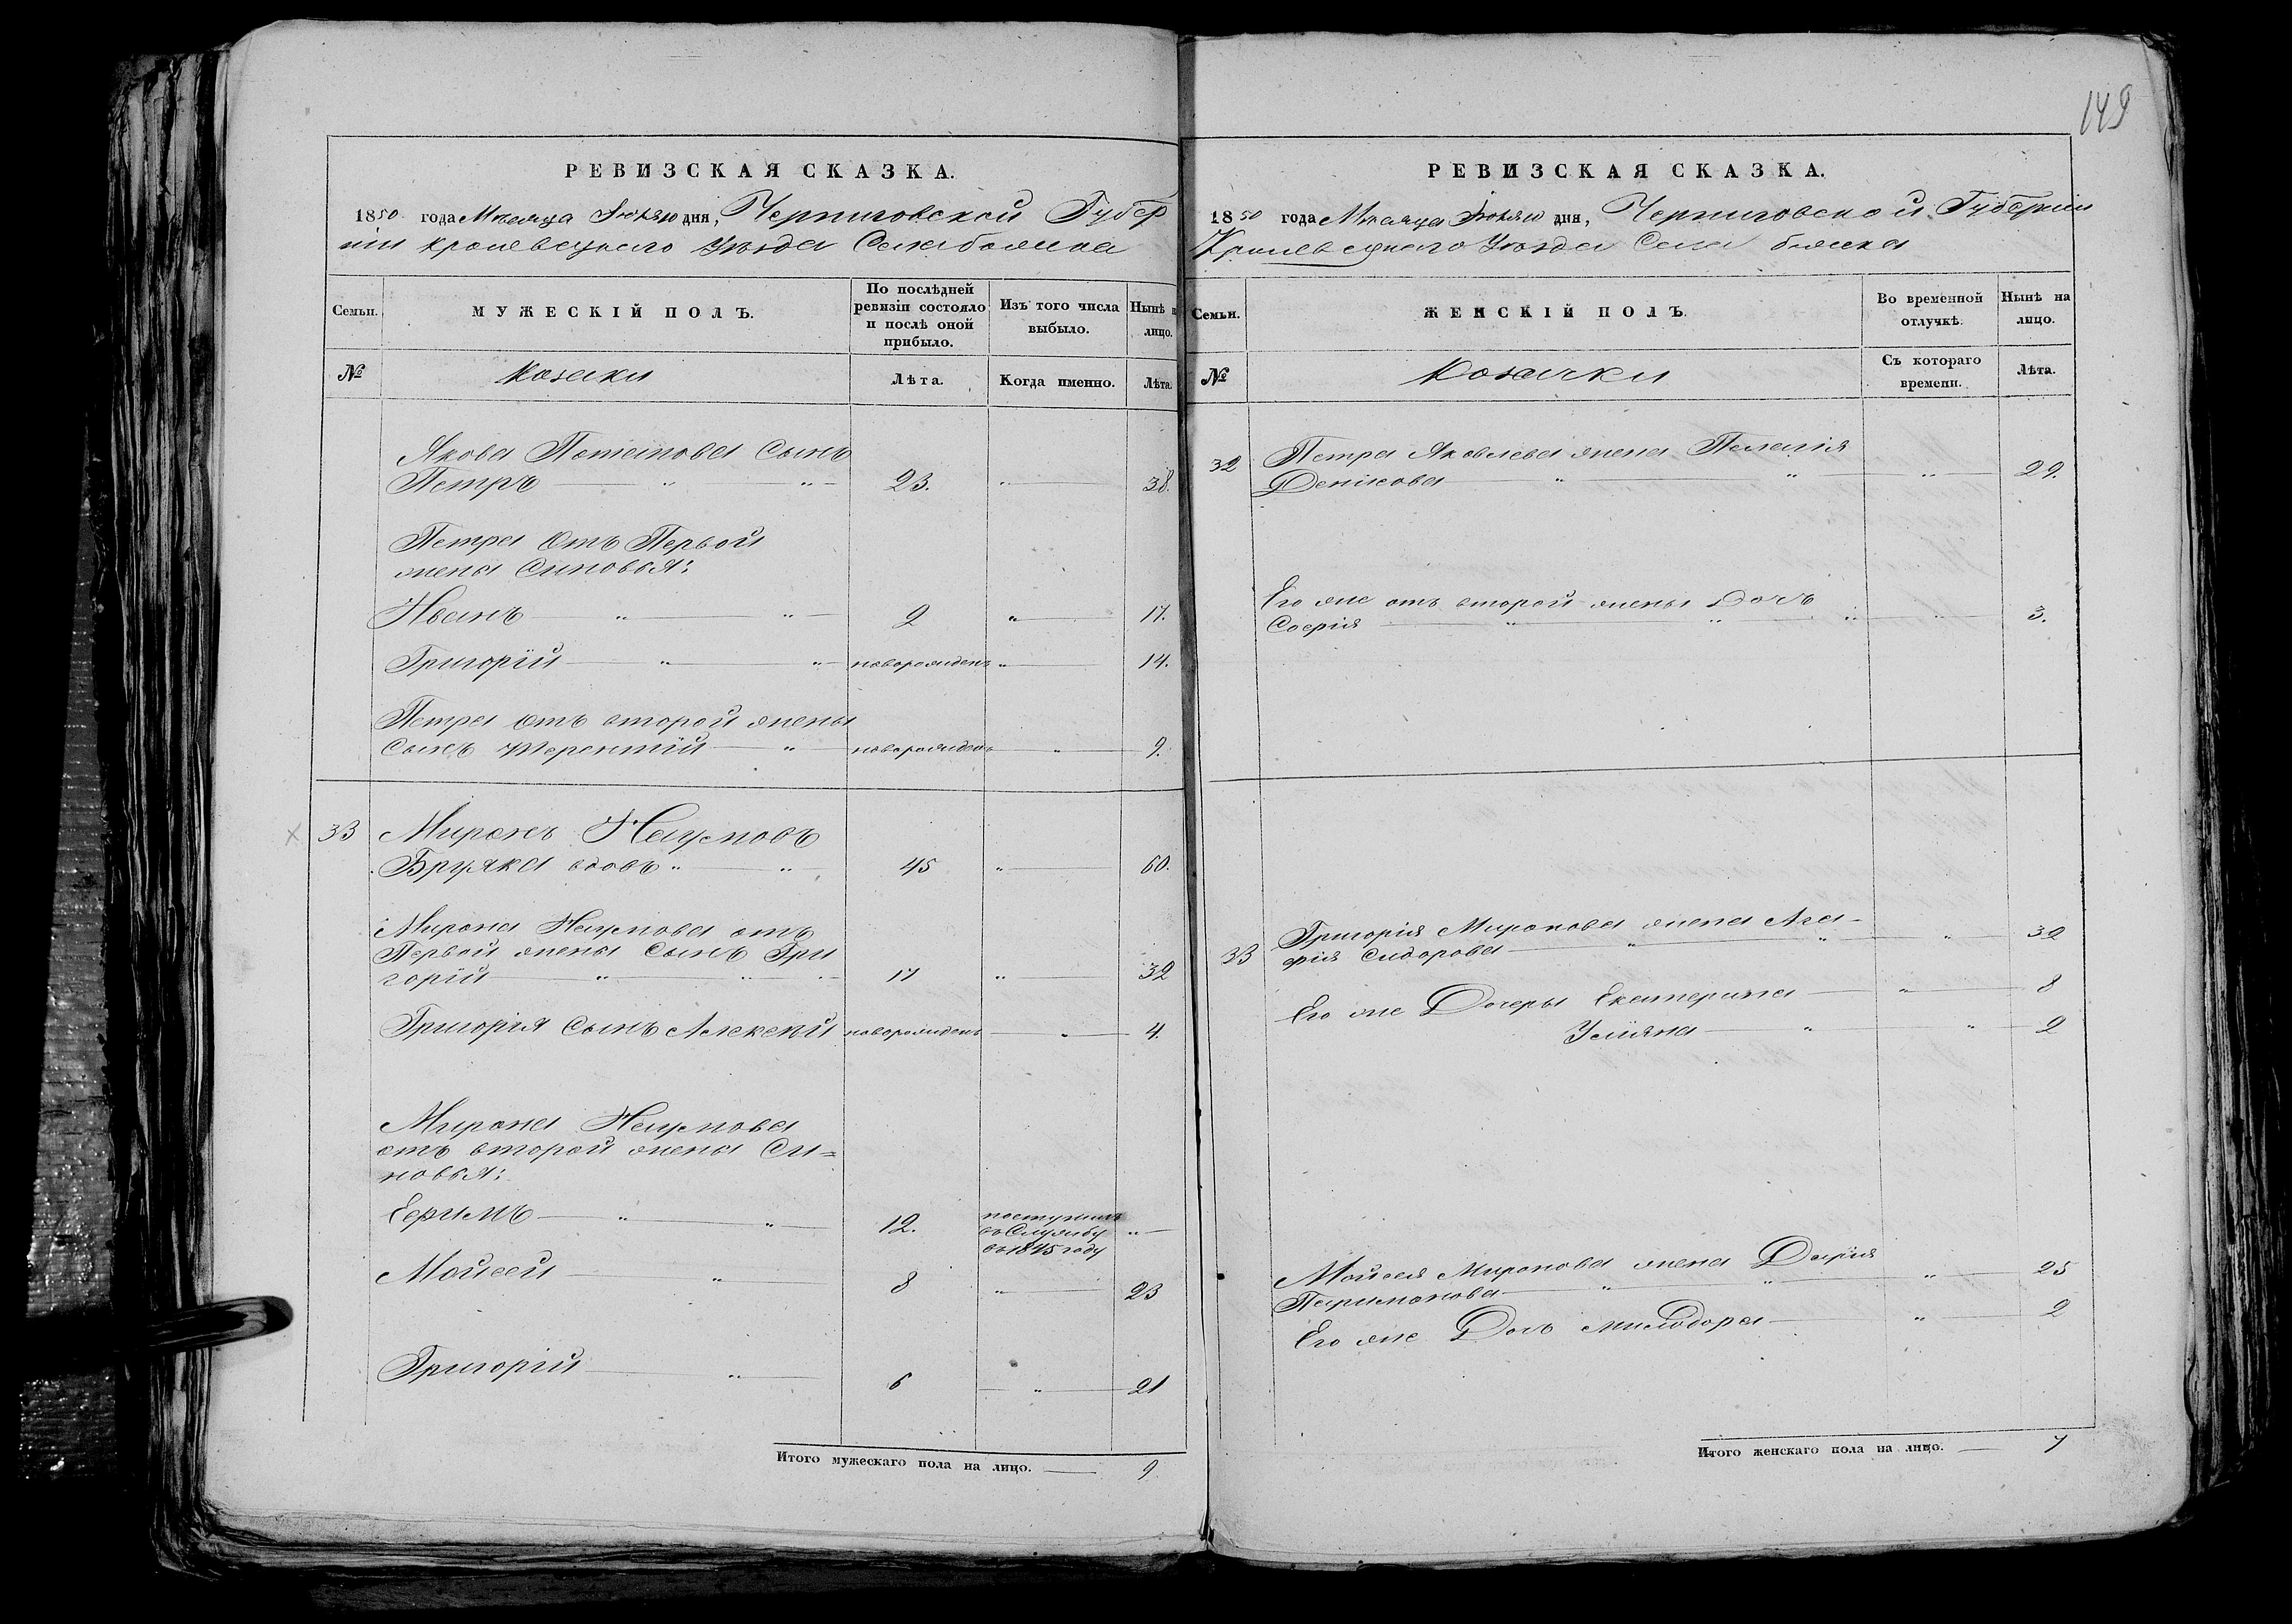 149
РЕВИЗСКАЯ СКАЗКА.
1850 года Мѣсяца Іюля дня, Черниговской Губер
ніи Кролевецкаго Уѣзда Села
Семьи.
МУЖЕСКІЙ ПОЛЪ.
По послѣдней ревизіи состояло и послѣ оной прибыло.
Изъ того числа выбыло.
Нынѣ на лицо.
№
Козаки
Лѣта.
Когда именно.
Лѣта.
Якова Потапова Сынъ
Петръ — " — " — 23. " — 38.
Петра Отъ Первой
жены Синовья:
Иванъ — " — " — 2 " — 17.
Григорій — " — " — новорожденъ " — 14.
Петра отъ второй жены
Сынъ Терентій — " новорожденъ — " — 9.
33 Миронъ Наумовъ
Бруяка вдовъ " — " 45 " — 60.
Мирона Наумова отъ
Первой жены Сынъ Гри
горій — " — " — 17 " — 32
Григорія Сынъ Алексѣй новорожденъ — " — 4.
Мирона Наумова
отъ второй жены Си=
новья:
Ефимъ — " — " — 12. поступилъ
въ Службу " —
въ 1845 году
Мойсей — " 8 " — 23
Григорій — " — 6 — " — 21
Итого мужескаго пола на лицо. — 9
РЕВИЗСКАЯ СКАЗКА.
1850 года Мѣсяца Іюля дня, Черниговской Губерніи
Кролевецкаго Уѣзда Села
Семьи.
ЖЕНСКІЙ ПОЛЪ.
Во временной отлучкѣ.
Нынѣ на лицо.
№
Козачки
Съ котораго времени.
Лѣта.
32 Петра Яковлева жена Пелагія
Денисова — " — " — " — 29.
Его же отъ второй жены Дочь
Софія — " — " — " — " — 3.
33 Григорія Миронова жена Ага-
фія Сидорова — " — " — " — 32
Его же Дочеры Екатерина — " — 8
Уліяна — " — " — 2
Мойсея Миронова жена Дарія
Паримонова — " — " — " — 25
Его же Дочь Милодора — " — 2
Итого женскаго пола на лицо. — 7